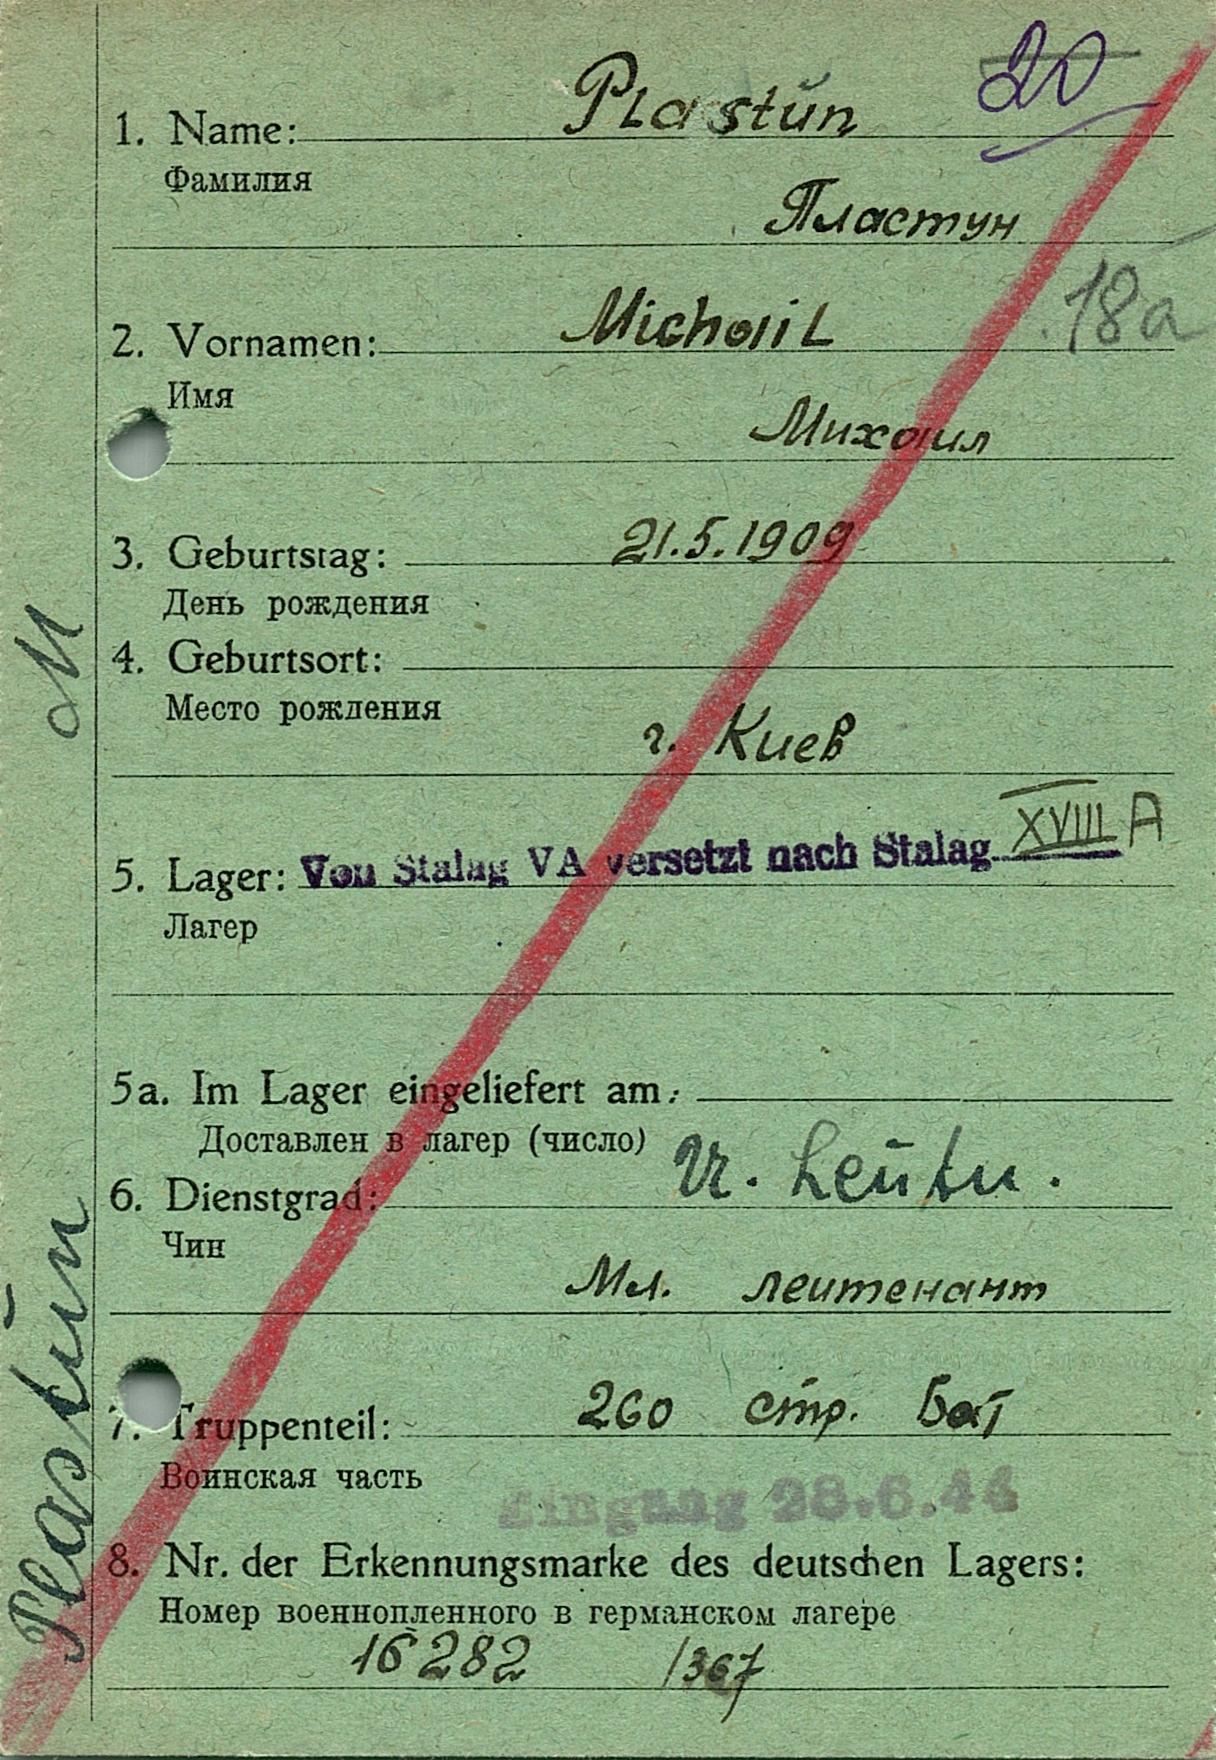 20
1. Name: Plastŭn
Фамилия
Пластун
18a
2. Vornamen: Michail
Имя
Михаил
3. Geburtstag: 21.5.1909
День рождения
4. Geburtsort:
Место рождения
г. Киев
5. Lager: Von Stalag VA versetzt nach Stalag XVIII A
Лагер
5a. Im Lager eingeliefert am:
Доставлен в лагер (число)
6. Dienstgrad: Leutn.
Чин
Мл. леитенант
7. Truppenteil: 260 стр. Бат
Воинская часть
Eingang 28.6.44
8. Nr. der Erkennungsmarke des deutschen Lagers:
Номер военнопленного в германском лагере
16282 /367
Plastūn M